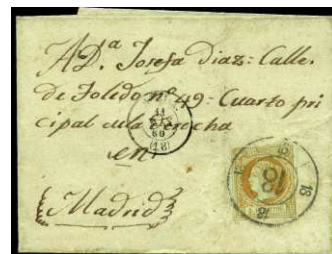 A D.ª Josefa Diaz: Calle.
de Toledo nº 49: Cuarto prin
cipal de la Derecha
en
Madrid
11
60
(18)
18
18
18